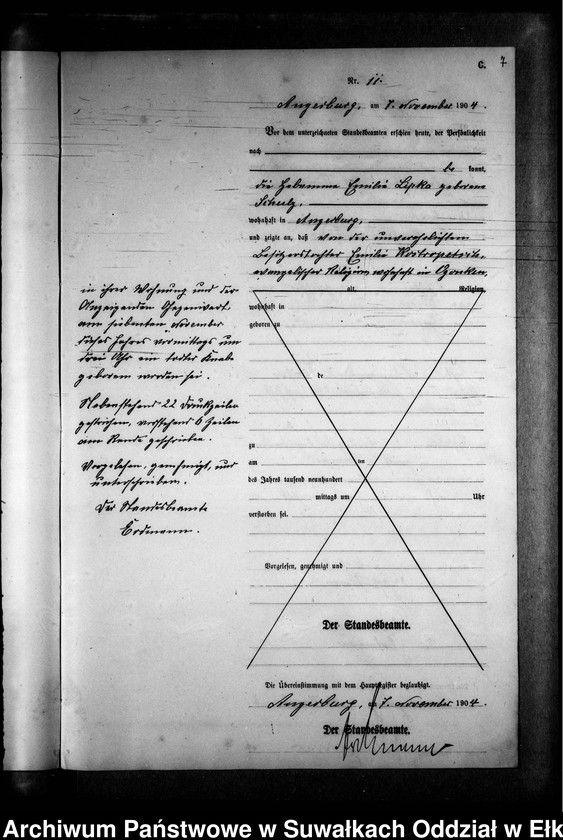 C. 7
Nr. 11.
Angerburg, am 7. November 1904.
Vor dem unterzeichneten Standesbeamten erschien heute, der Persönlichkeit
nach
be kannt,
die Hebamme Emilie Lipka geborene
Schulz,
wohnhaft in Angerburg,
und zeigte an, daß von der unverehelichten
Besitzerstochter Emilie
evangelischer Religion, wohnhaft in
alt, Religion,
wohnhaft in
geboren zu
de
zu
am ten
des Jahres tausend neunhundert
mittags um Uhr
verstorben sei.
in ihrer Wohnung und der
Anzeigenden Gegenwart,
am siebenten November
dieses Jahres vormittags um
drei Uhr ein todter Knabe
geboren worden sei.
Nebenstehend 22 Druckzeilen
gestrichen, vorstehend 6 Zeilen
am Rande geschrieben.
Vorgelesen, genehmigt, und
unterschrieben.
Der Standesbeamte
Erdmann.
Vorgelesen, genehmigt und
Der Standesbeamte.
Die Übereinstimmung mit dem Hauptregister beglaubigt.
Angerburg, am 7. November 1904.
Der Standesbeamte.
Erdmann
Archiwum Państwowe w Suwałkach Oddział w Ełk